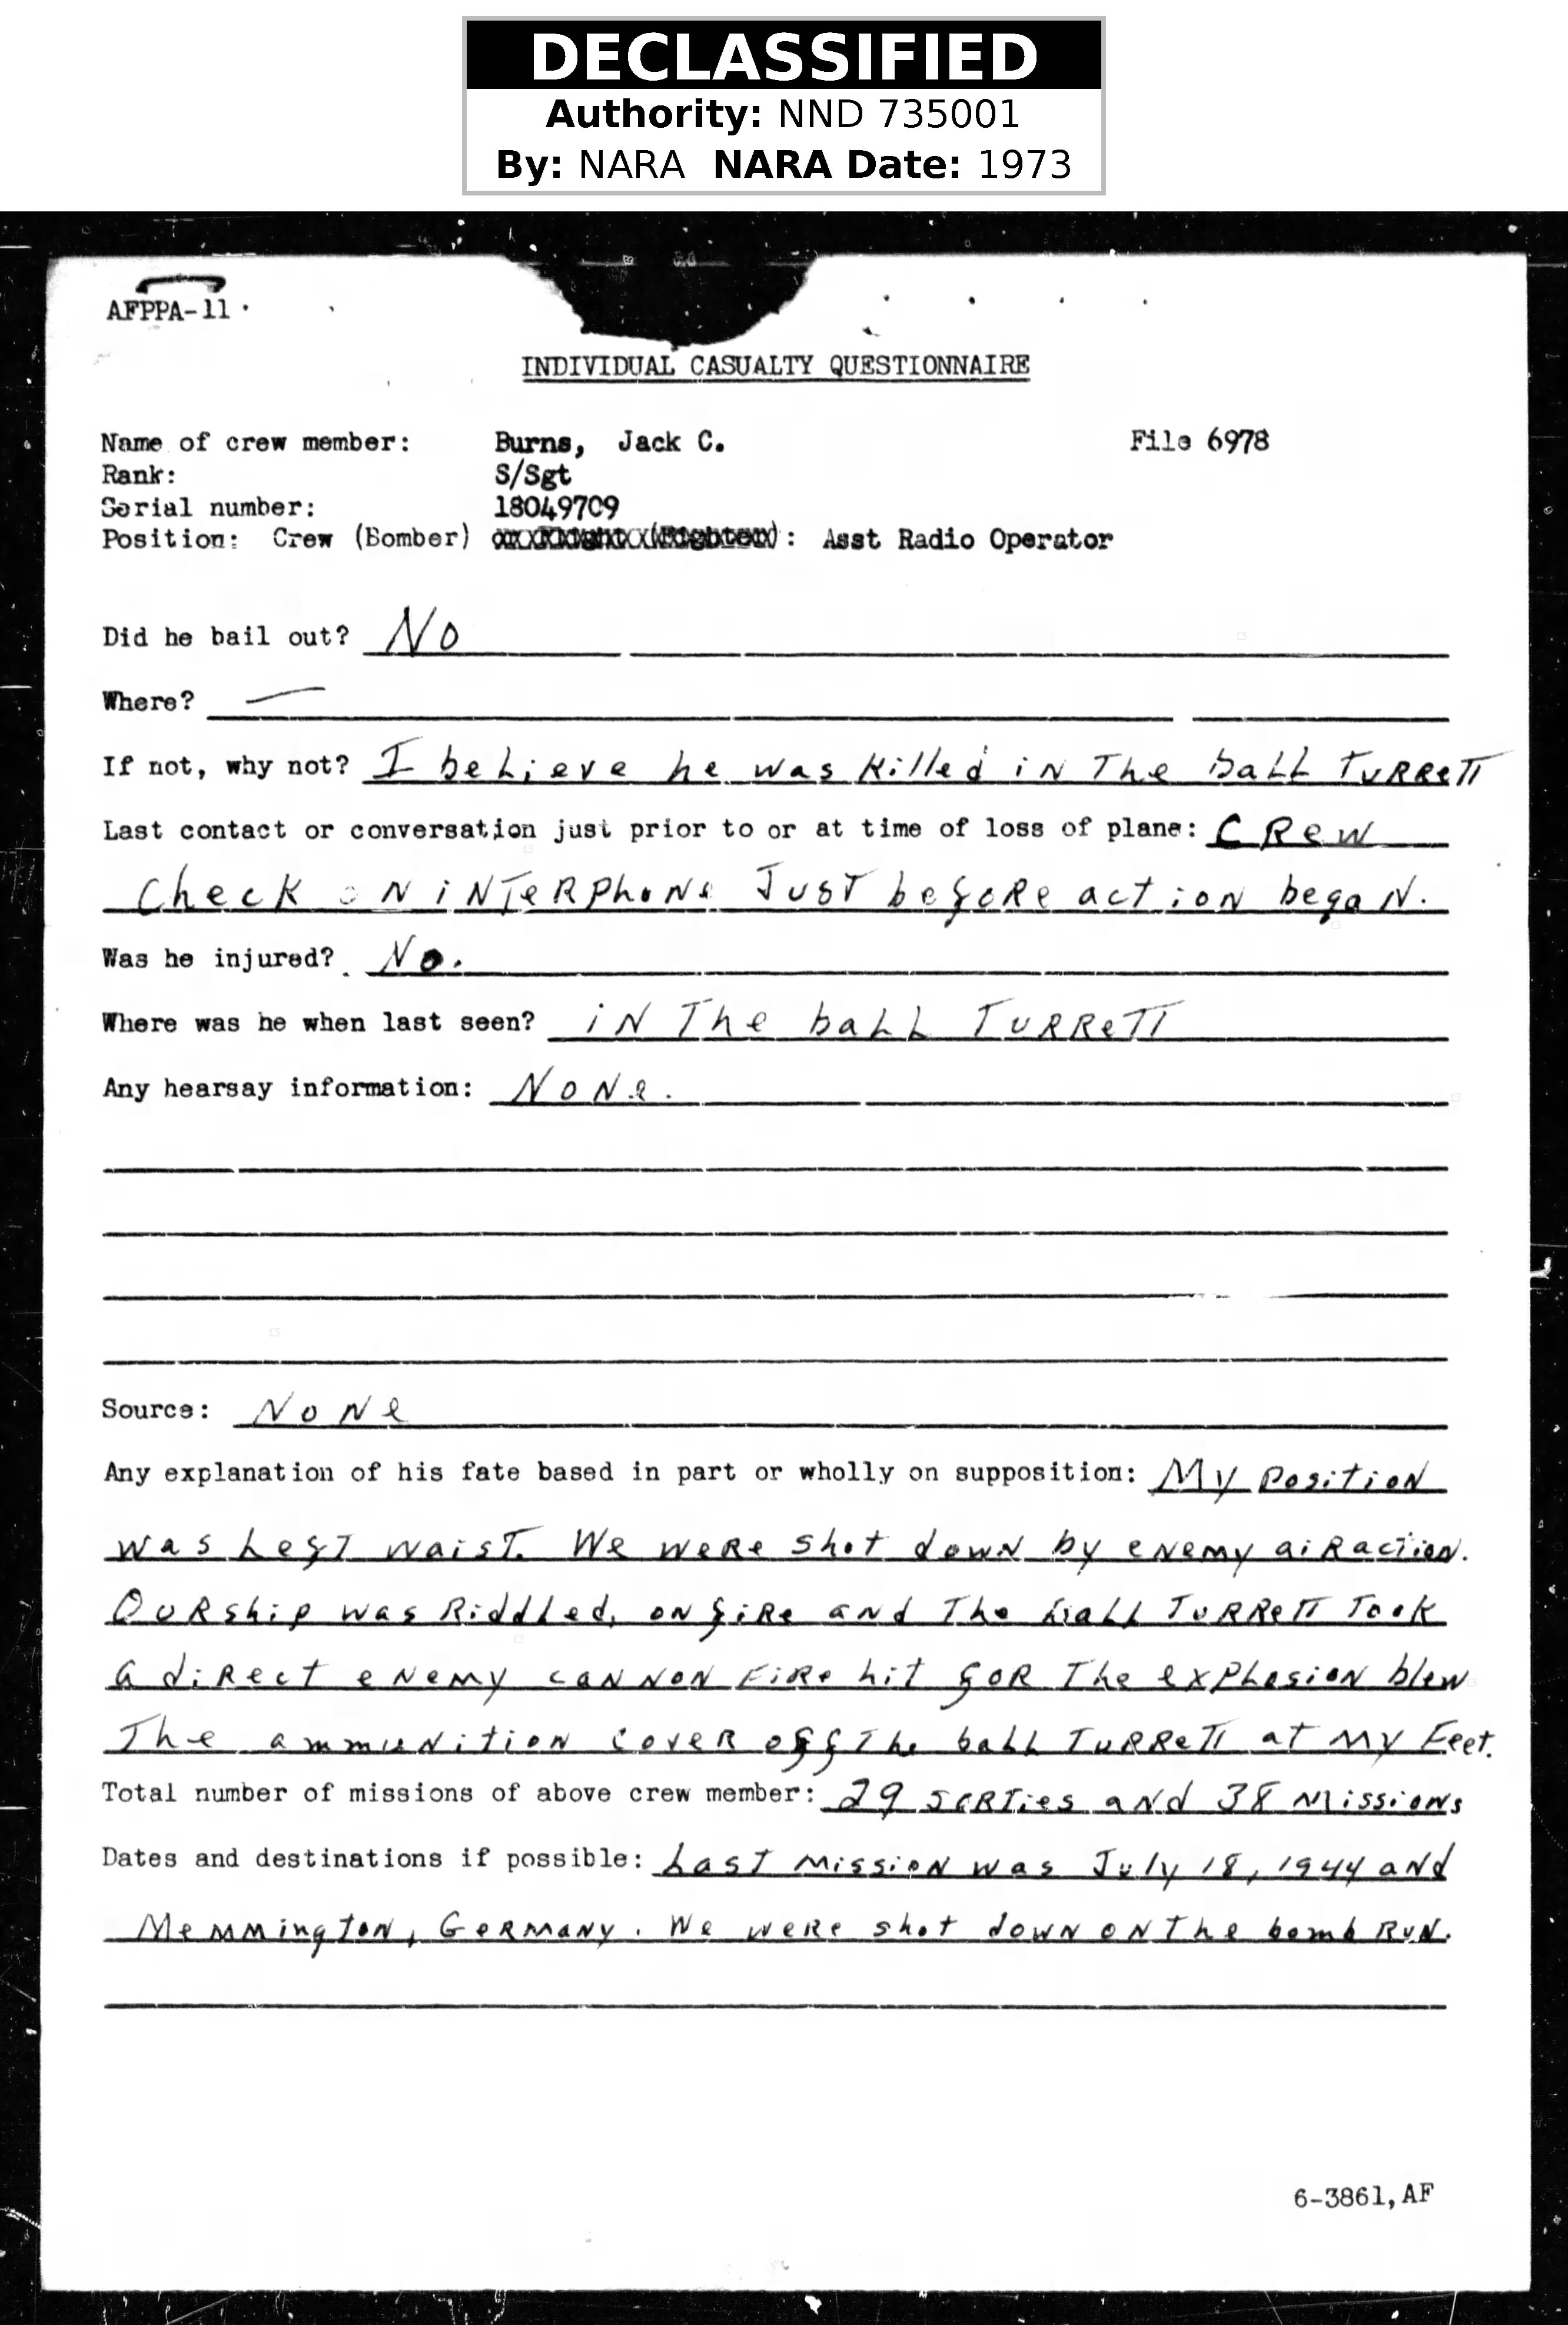 DECLASSIFIED
Authority: NND 735001
By: NARA NARA Date: 1973
AFPPA-11
INDIVIDUAL CASUALTY QUESTIONNAIRE
Name of crew member: Burns, Jack C. File 6978
Rank: S/Sgt
Serial number: 18049709
Position: Crew (Bomber) : Asst Radio Operator
Did he bail out? No
Where? —
If not, why not? I believe he was killed in The ball Turrett
Last contact or conversation just prior to or at time of loss of plane: Crew
check on interphone Just before action began.
Was he injured? No.
Where was he when last seen? in The ball Turrett
Any hearsay information: None.
Source: None
Any explanation of his fate based in part or wholly on supposition: My position
was Left waist. We were shot down by enemy airaction.
Our ship was Riddled, on fire and The ball Turrett Took
a direct enemy cannon Fire hit for The explosion blew
The ammunition cover off The ball Turrett at my Feet.
Total number of missions of above crew member: 29 sorties and 38 missions
Dates and destinations if possible: Last mission was July 18, 1944 and
Memmington, Germany. We were shot down on The bomb Run.
6-3861,AF